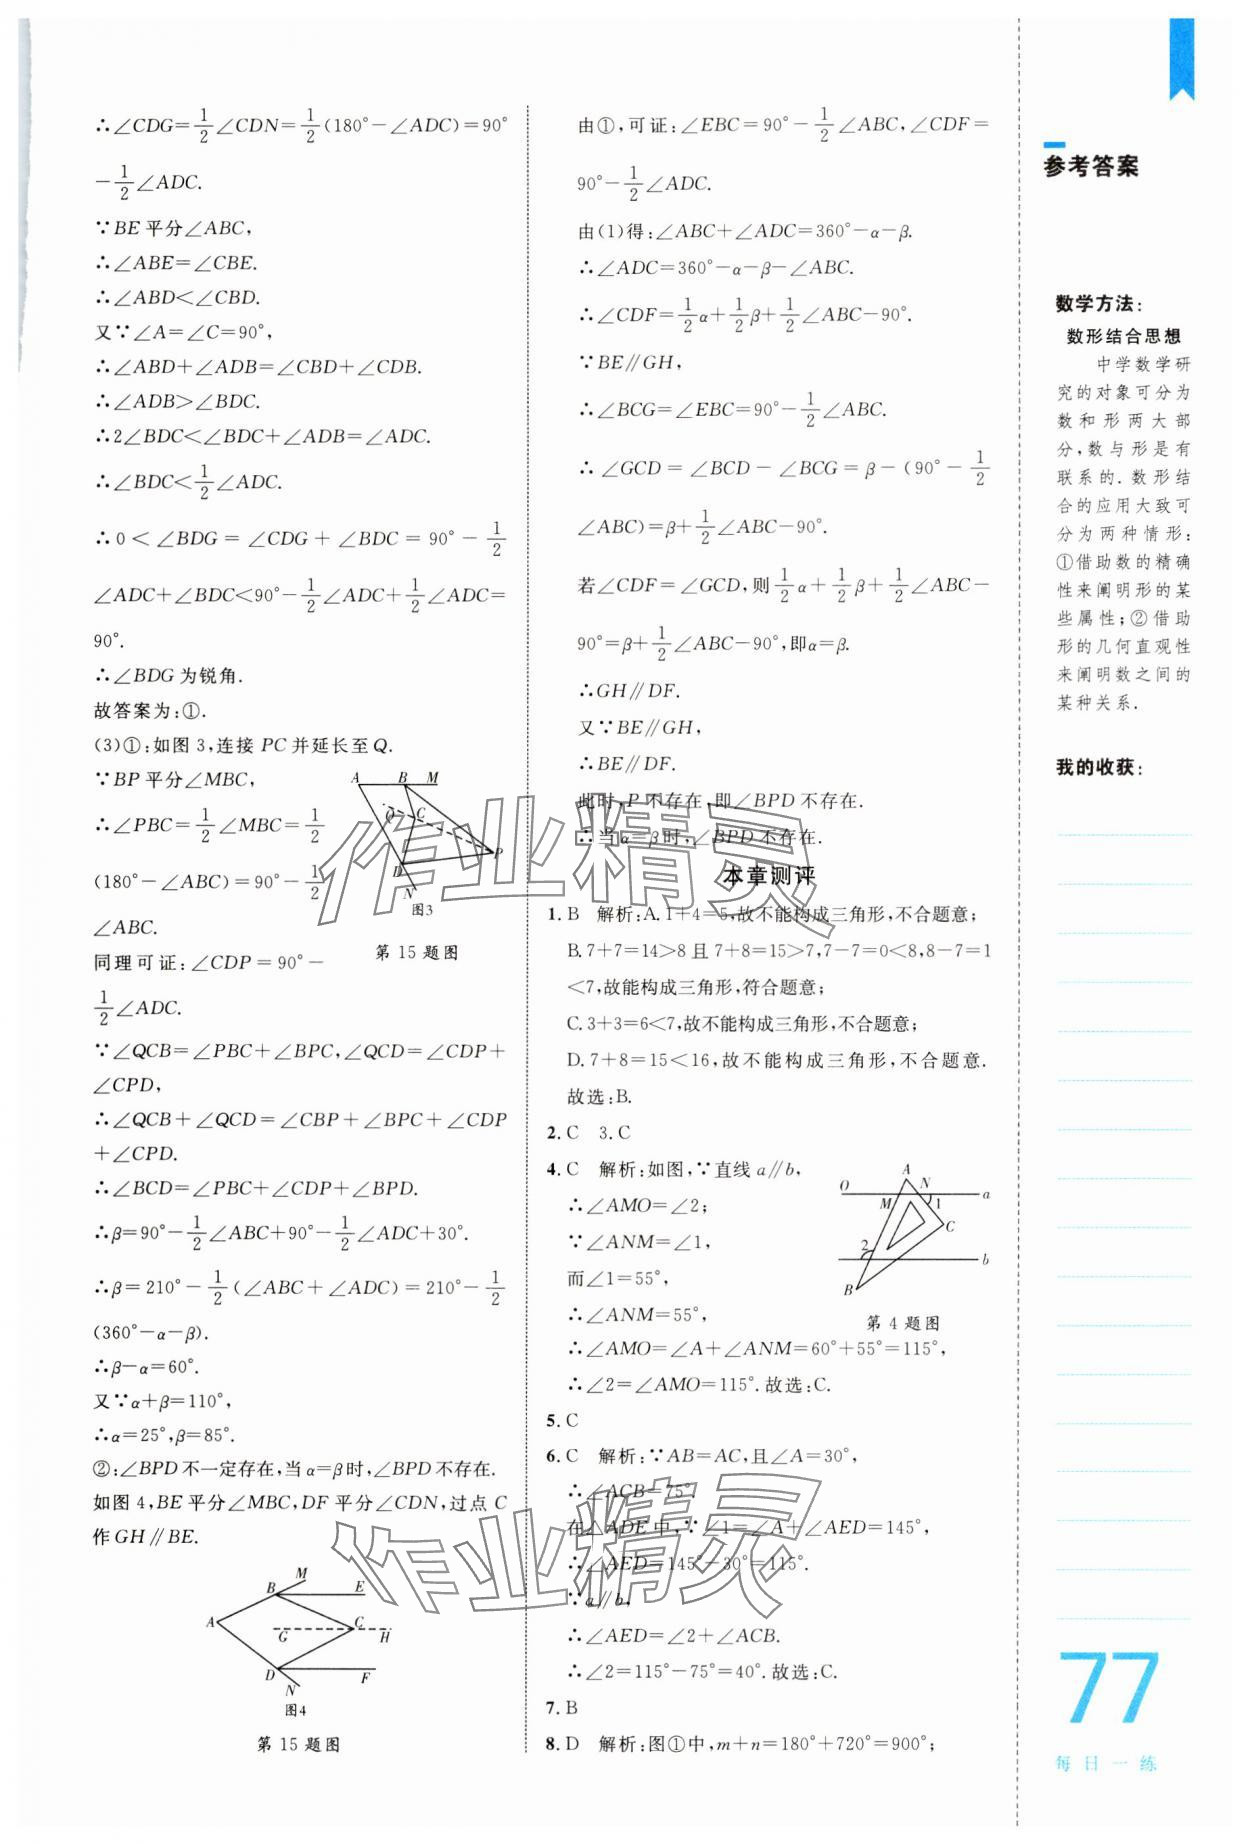 ∴∠CDG=1/2∠CDN=1/2(180°-∠ADC)=90°
-1/2∠ADC.
∵BE平分∠ABC,
∴∠ABE=∠CBE.
∴∠ABD<∠CBD.
又∵∠A=∠C=90°,
∴∠ABD+∠ADB=∠CBD+∠CDB.
∴∠ADB>∠BDC.
∴2∠BDC<∠BDC+∠ADB=∠ADC.
∴∠BDC<1/2∠ADC.
∴0<∠BDG=∠CDG+∠BDC=90°-1/2
∠ADC+∠BDC<90°-1/2∠ADC+1/2∠ADC=
90°.
∴∠BDG为锐角.
故答案为:①.
(3)①:如图3,连接PC并延长至Q.
∵BP平分∠MBC,
∴∠PBC=1/2∠MBC=1/2
(180°-∠ABC)=90°-1/2
∠ABC.
同理可证:∠CDP=90°-
1/2∠ADC.
A B M
Q C
D P
N
图3
第15题图
∵∠QCB=∠PBC+∠BPC,∠QCD=∠CDP+
∠CPD,
∴∠QCB+∠QCD=∠CBP+∠BPC+∠CDP
+∠CPD.
∴∠BCD=∠PBC+∠CDP+∠BPD.
∴β=90°-1/2∠ABC+90°-1/2∠ADC+30°.
∴β=210°-1/2(∠ABC+∠ADC)=210°-1/2
(360°-α-β).
∴β-α=60°.
又∵α+β=110°,
∴α=25°,β=85°.
②:∠BPD不一定存在,当α=β时,∠BPD不存在.
如图4,BE平分∠MBC,DF平分∠CDN,过点C
作GH∥BE.
M
B E
A G C H
D F
N
图4
第15题图
由①,可证:∠EBC=90°-1/2∠ABC,∠CDF=
90°-1/2∠ADC.
由(1)得:∠ABC+∠ADC=360°-α-β.
∴∠ADC=360°-α-β-∠ABC.
∴∠CDF=1/2α+1/2β+1/2∠ABC-90°.
∵BE∥GH,
∴∠BCG=∠EBC=90°-1/2∠ABC.
∴∠GCD=∠BCD-∠BCG=β-(90°-1/2
∠ABC)=β+1/2∠ABC-90°.
若∠CDF=∠GCD,则1/2α+1/2β+1/2∠ABC-
90°=β+1/2∠ABC-90°,即α=β.
∴GH∥DF.
又∵BE∥GH,
∴BE∥DF.
此时,P不存在,即∠BPD不存在.
∴当α=β时,∠BPD不存在.
本章测评
1.B 解析:A.1+4=5,故不能构成三角形,不合题意;
B.7+7=14>8且7+8=15>7,7-7=0<8,8-7=1
<7,故能构成三角形,符合题意;
C.3+3=6<7,故不能构成三角形,不合题意;
D.7+8=15<16,故不能构成三角形,不合题意.
故选:B.
2.C 3.C
4.C 解析:如图,∵直线a∥b,
∴∠AMO=∠2;
∵∠ANM=∠1,
而∠1=55°,
∴∠ANM=55°,
∴∠AMO=∠A+∠ANM=60°+55°=115°,
∴∠2=∠AMO=115°.故选:C.
A
O N a
M 1
C
2
b
B
第4题图
5.C
6.C 解析:∵AB=AC,且∠A=30°,
∴∠ACB=75°.
在△ADE中,∵∠1=∠A+∠AED=145°,
∴∠AED=145°-30°=115°.
∵a∥b,
∴∠AED=∠2+∠ACB.
∴∠2=115°-75°=40°.故选:C.
7.B
8.D 解析:图①中,m+n=180°+720°=900°;
参考答案
数学方法:
数形结合思想
中学数学研
究的对象可分为
数和形两大部
分,数与形是有
联系的.数形结
合的应用大致可
分为两种情形:
①借助数的精确
性来阐明形的某
些属性;②借助
形的几何直观性
来阐明数之间的
某种关系.
我的收获:
77
每日一练
作业精灵
作业精灵